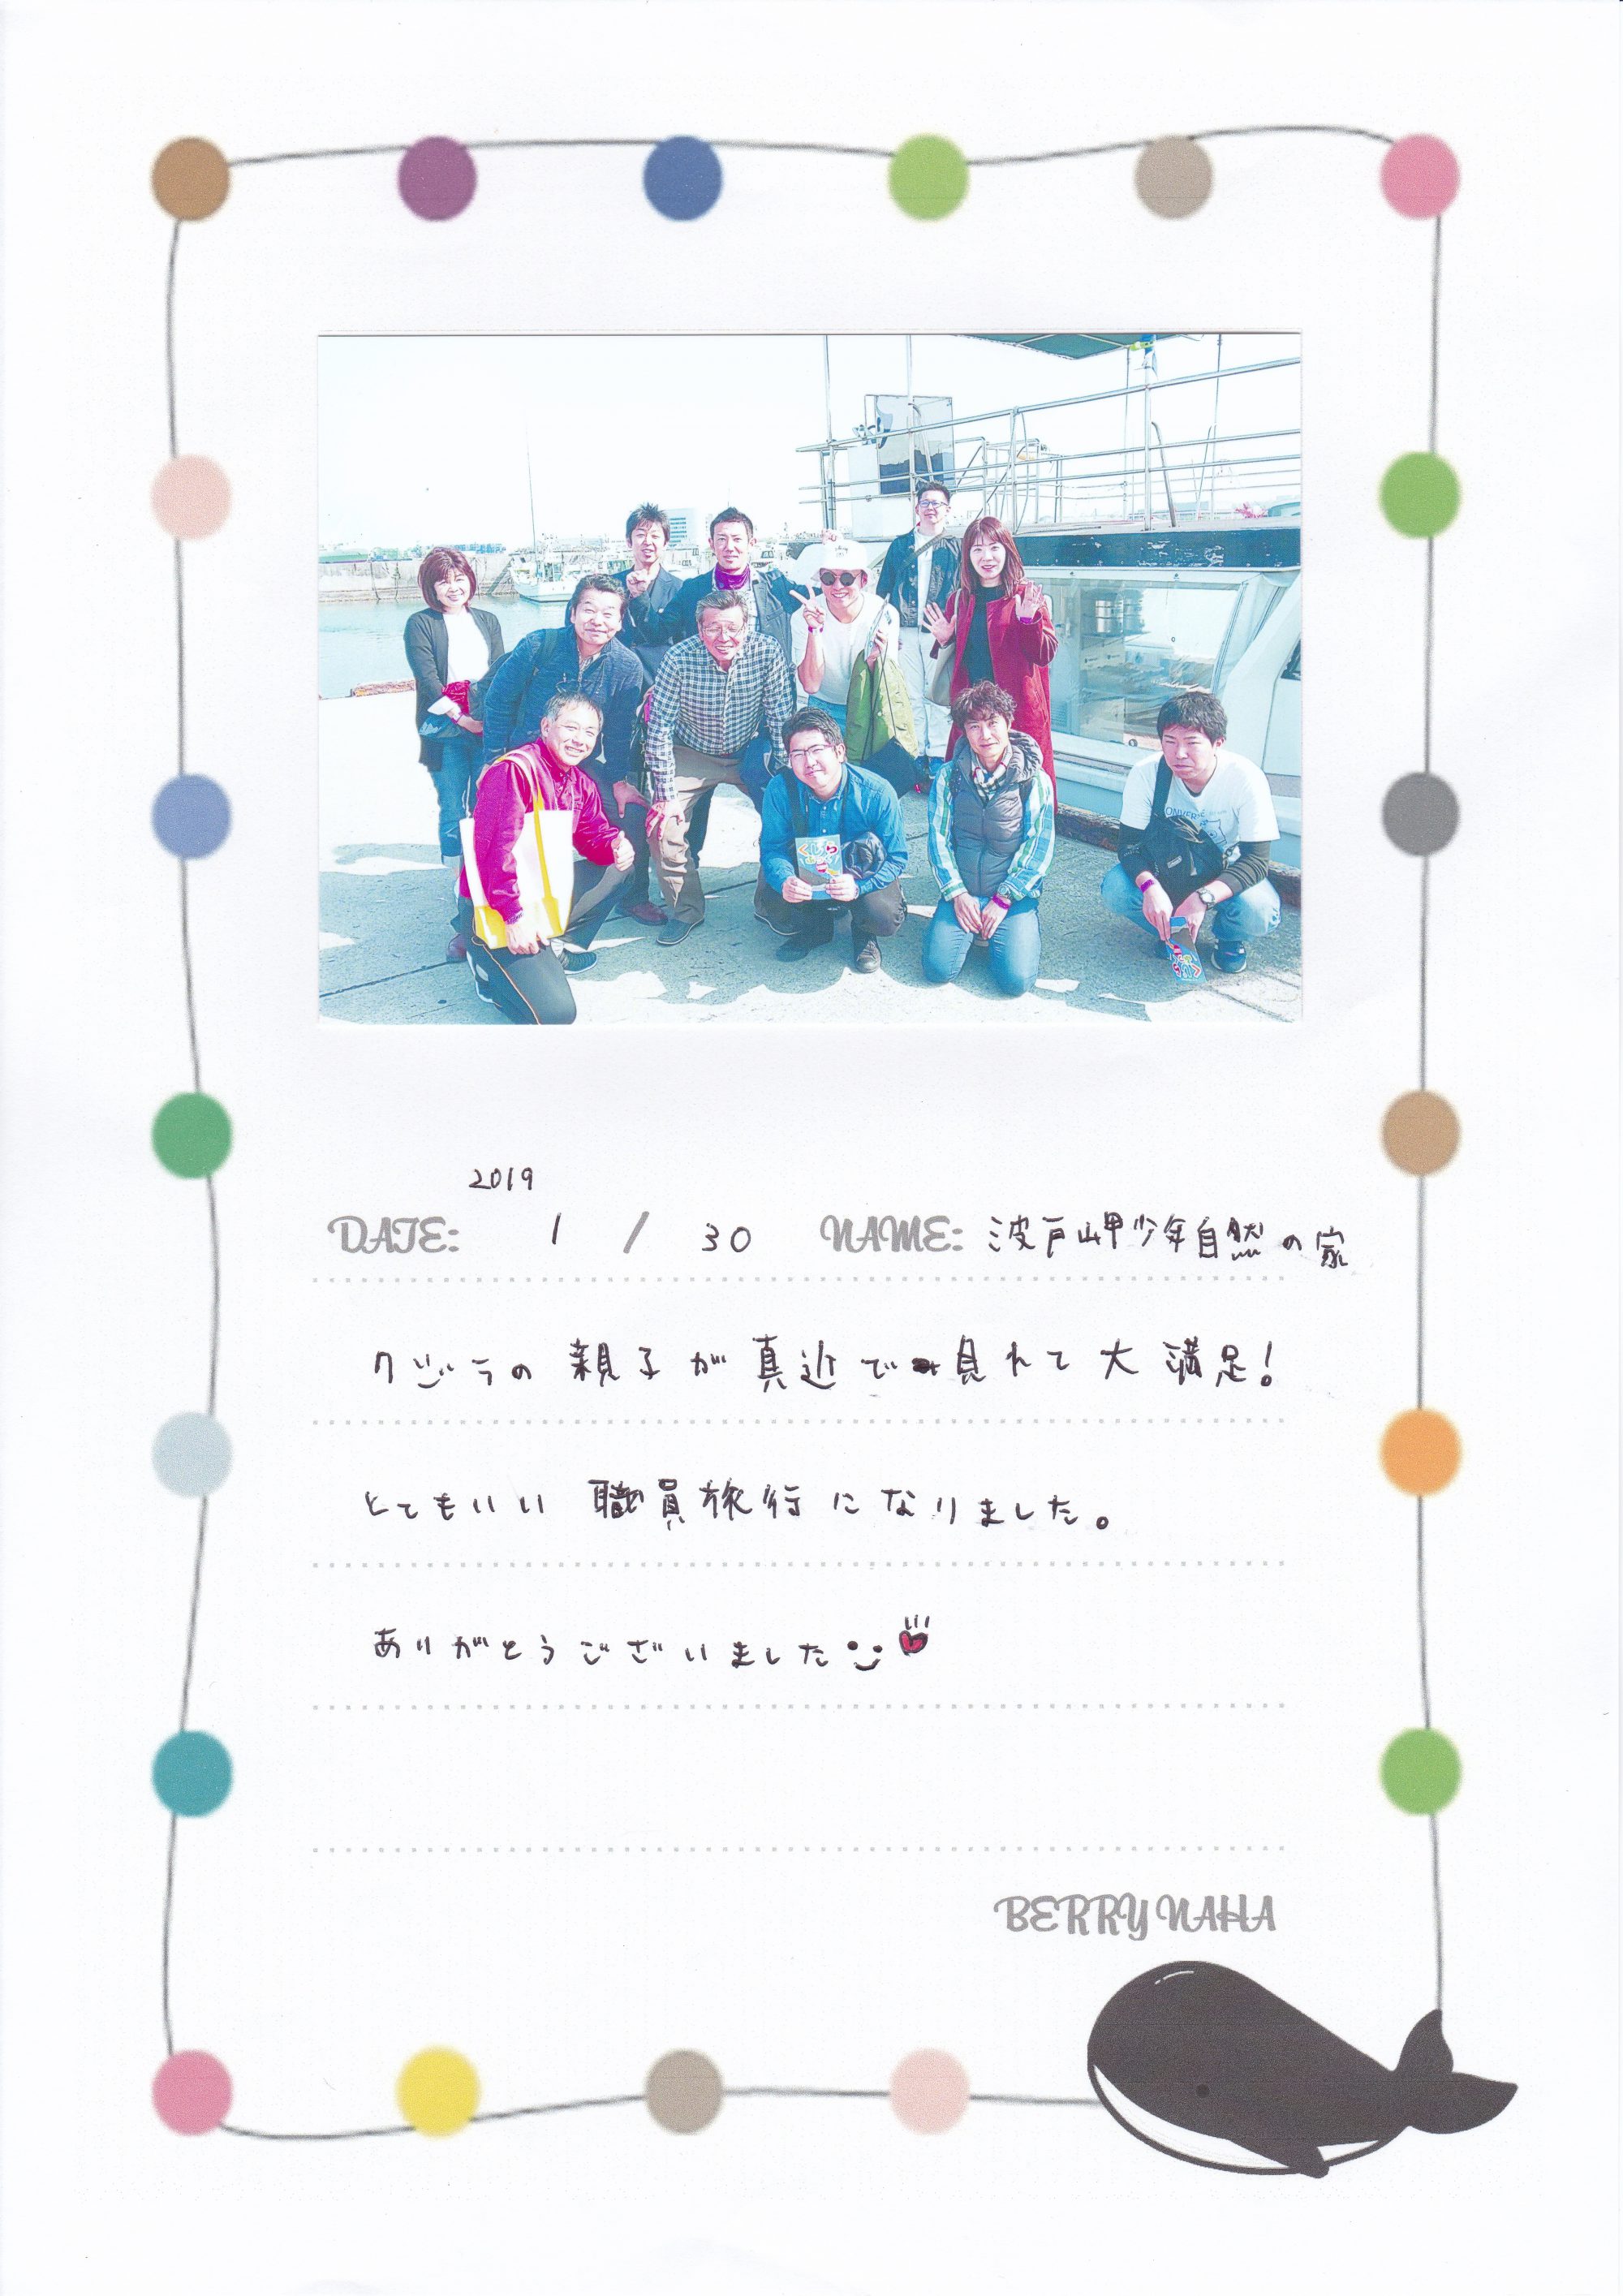 くじら
ONVER
2019
DATE: 1 / 30 NAME: 波戸岬少年自然の家
クジラの親子が真近で見れて大満足!
とてもいい職員旅行になりました。
ありがとうございました
BERRY NAHA